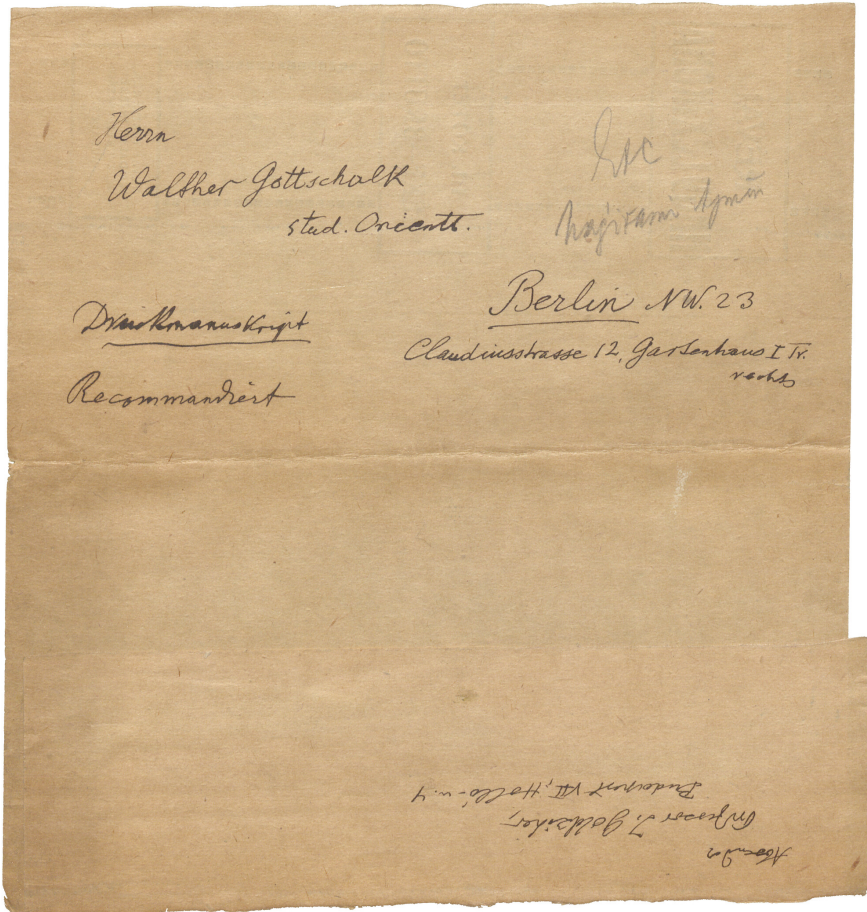 Herrn
Walther Gottschalk
stud. Orientt.
Berlin NW. 23
Claudiusstrasse 12, Gartenhaus I Tr.
rechts
Druckmanuskript
Recommandiert
Absender
Professor I. Goldziher,
Budapest VII, Holló-u. 4